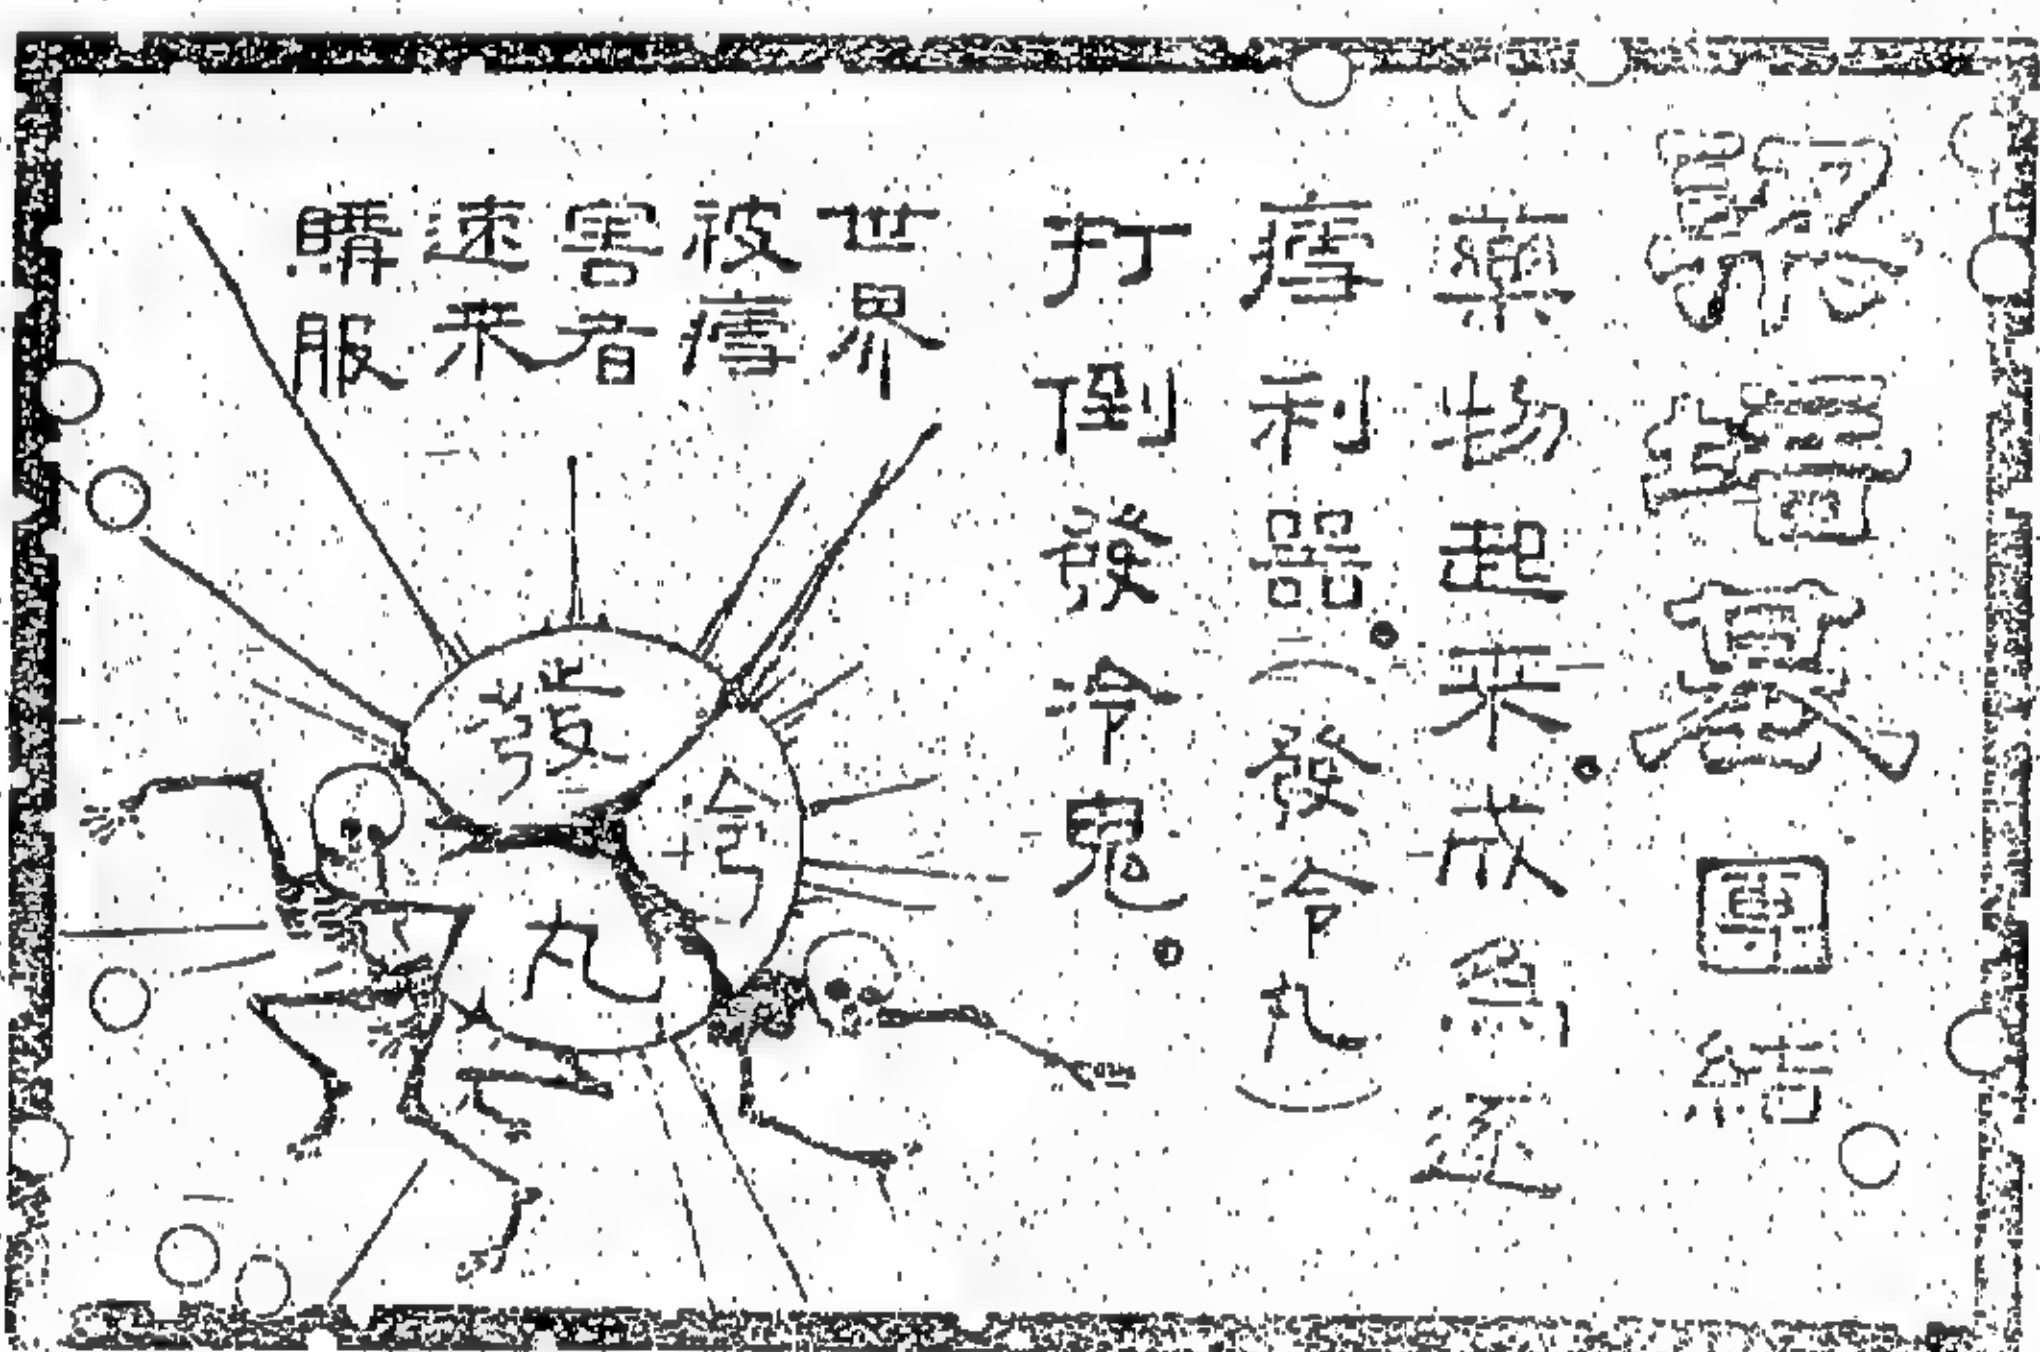 團結
藥物起来。成為逐
瘧利器。(發冷丸)
打倒發冷鬼。
世界
被瘧
害者
速来
購服
發
冷
丸